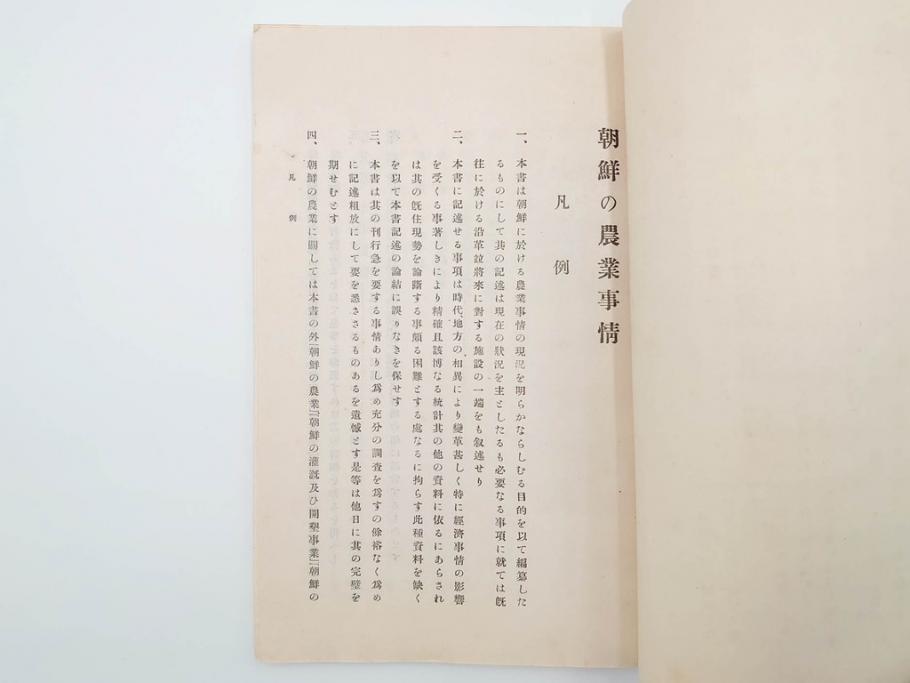 朝鮮の農業事情
凡例
一、本書は朝鮮に於ける農業事情の現況を明らかならしむる目的を以て編纂した
るものにして其の記述は現在の狀況を主としたるも必要なる事項に就ては既
往に於ける沿革竝將來に對する施設の一端をも叙述せり
二、本書に記述せる事項は時代、地方の相異により變革甚しく特に經濟事情の影響
を受くる事著しきにより精確且該博なる統計其の他の資料に依るにあらされ
は其の既住現勢を論斷する事頗る困難とする處なるに拘らす此種資料を缺く
を以て本書記述の論結に誤りなきを保せす
三、本書は其の刊行急を要する事情ありし爲め充分の調査を爲すの餘裕なく爲め
に記述粗放にして要を悉さざるものあるを遺憾とす是等は他日に其の完璧を
期せむとす
四、朝鮮の農業に關しては本書の外「朝鮮の農業」「朝鮮の灌漑及ひ開墾事業」「朝鮮の
凡例